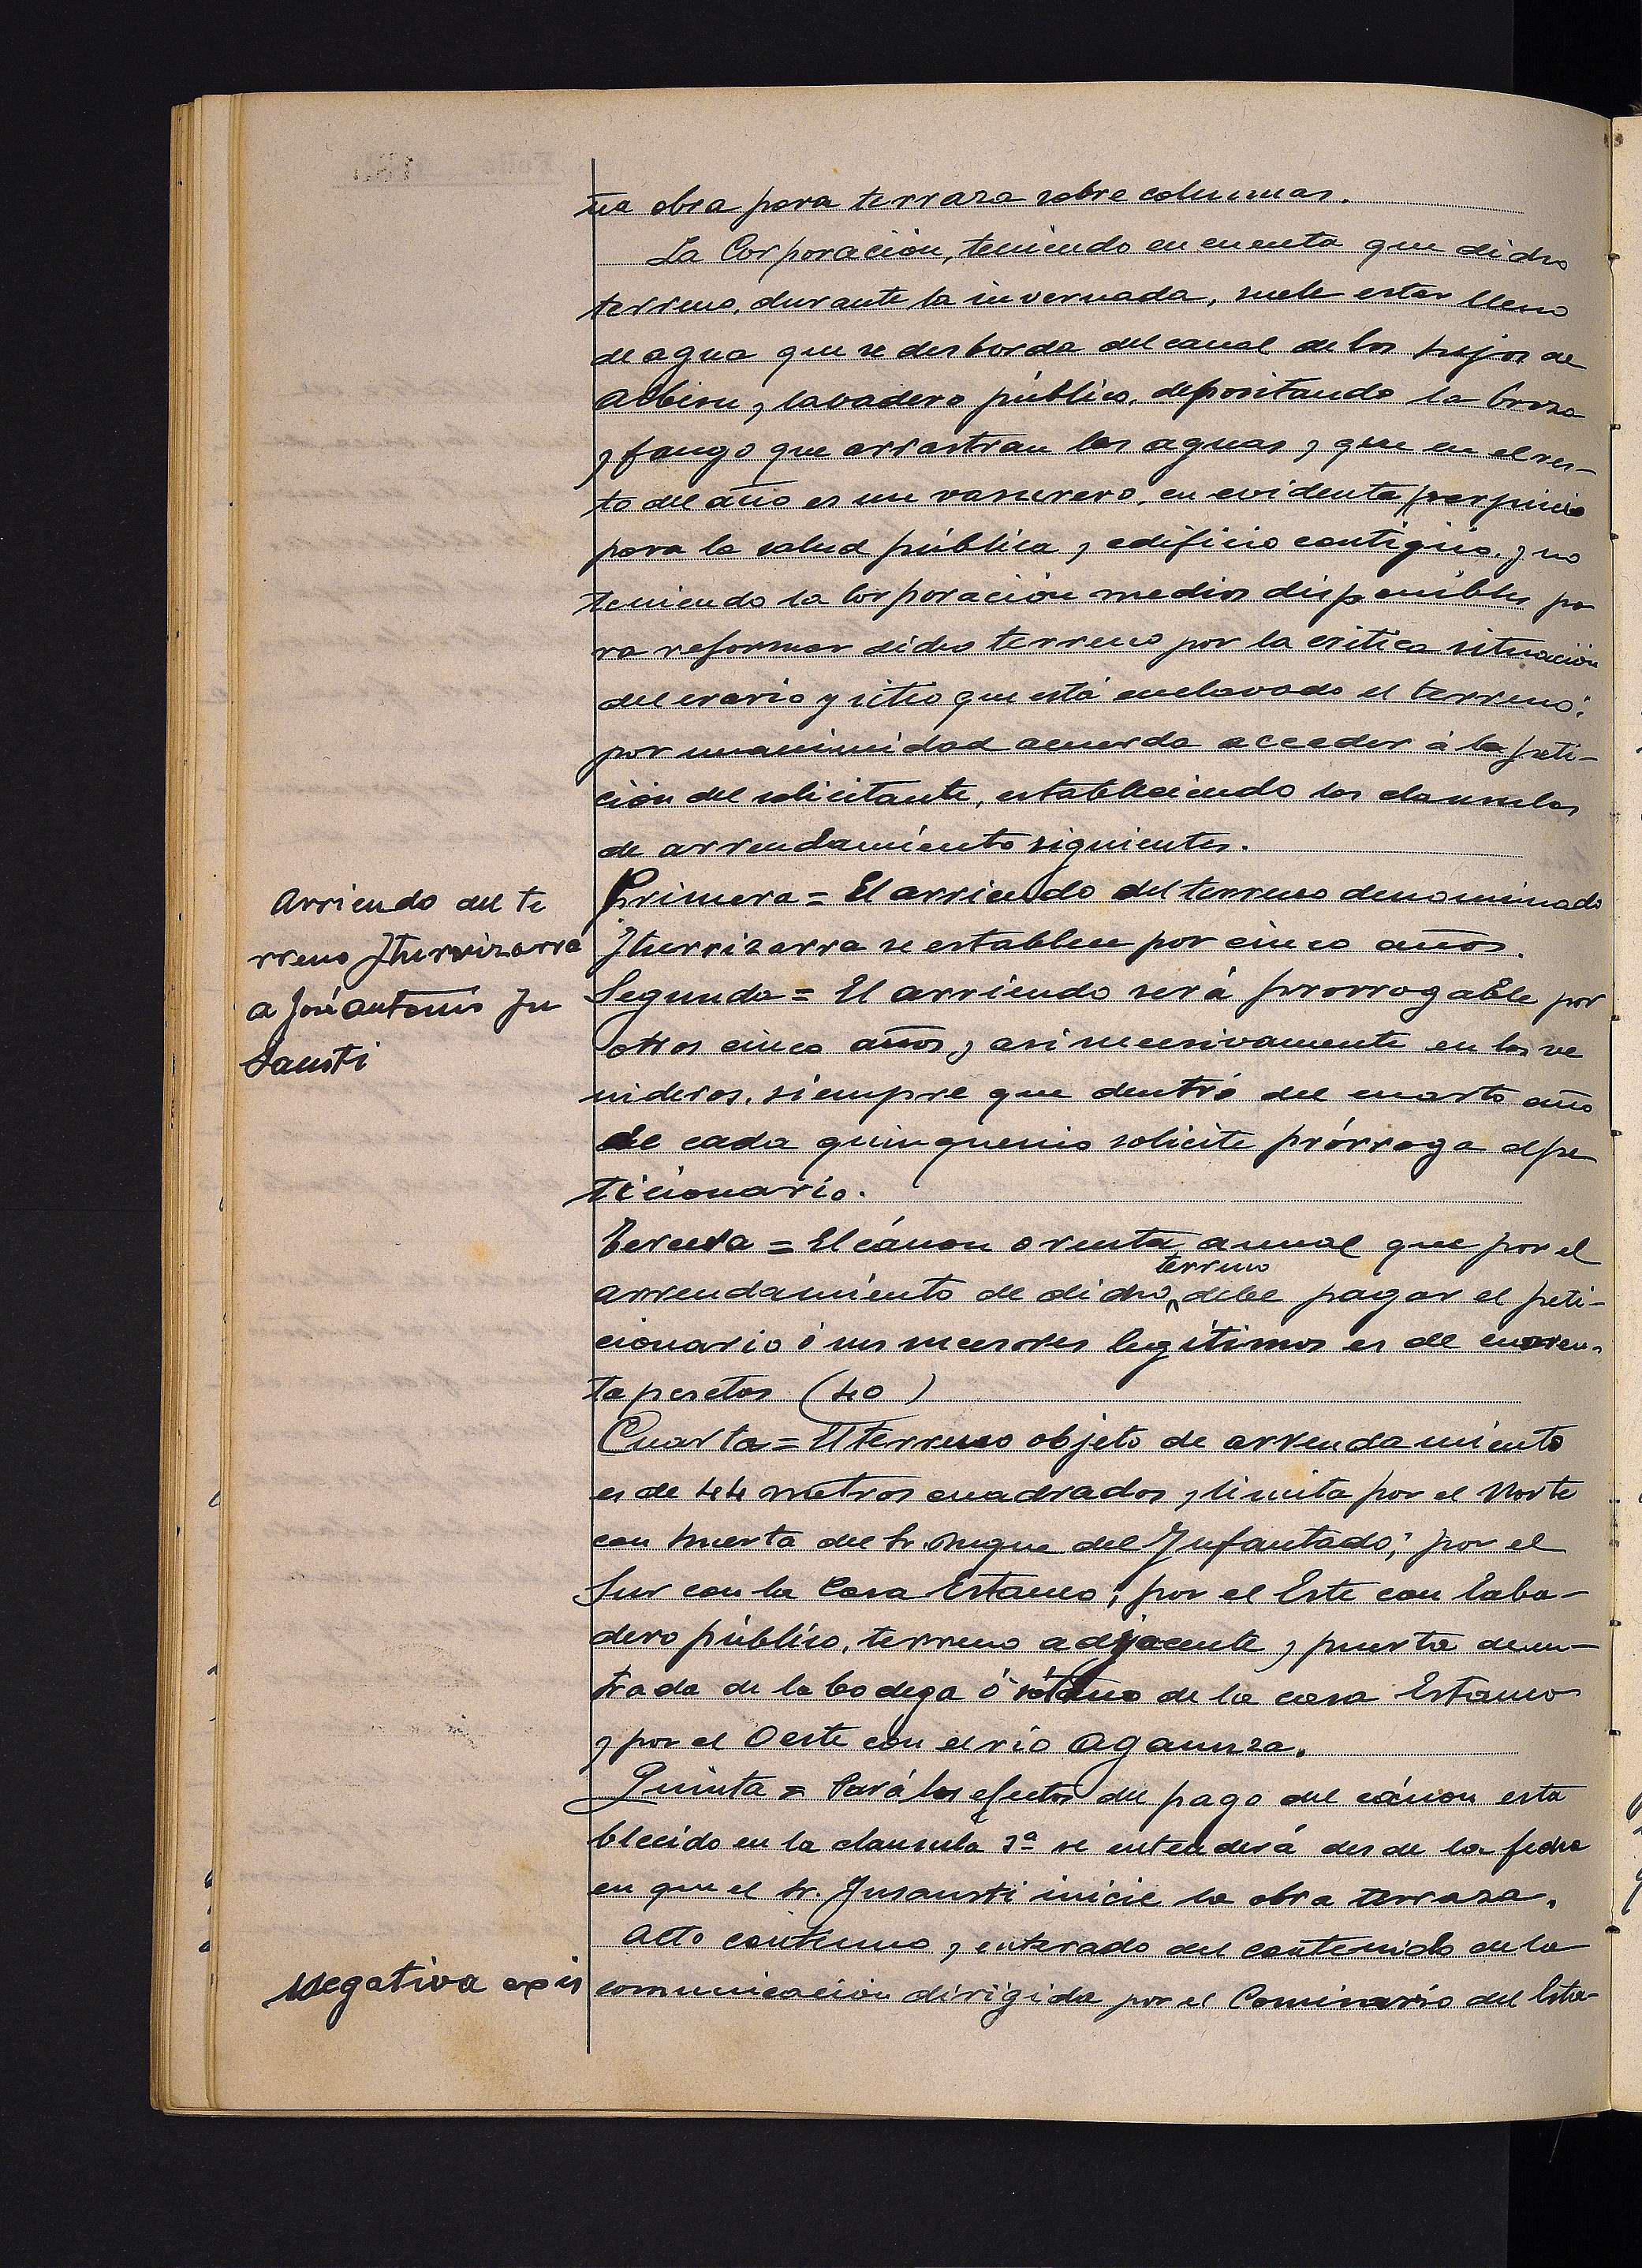 na obra para terraza sobre columnas.
La Corporación, teniendo en cuenta que dicho
terreno, durante la invernada, suele estar lleno
de agua que se desborda del canal de los hijos de
Albizu y lavadero público, depositando la broza
y fango que arrastran las aguas y que en el res-
to del año es un vasurero, en evidente perjuicio
para la salud pública y edificio contiguo, y no
teniendo la Corporación medios disponibles pa
ra reformar dicho terreno por la critica situación
del erario y sitio que está enclavado el terreno:
por unanimidad acuerda acceder á la peti-
ción del solicitante, estableciendo las clausulas
de arrendamiento siguientes.
Arriendo del te
rreno Iturrizarra
a José Antonio In
sausti
Primera = El arriendo del terreno denominado
Iturrizarra se establece por cinco años.
Segunda = El arriendo será prorrogable por
otros cinco años y asi sucesivamente en los ve
nideros, siempre que dentro del cuarto año
de cada quinquenio solicite prórroga el pe
ticionario.
Tercera = El cánon o renta anual que por el
arrendamiento de dicho terreno debe pagar el peti-
cionario ó sus sucesores legítimos es de cuaren-
ta pesetas (40)
Cuarta = El terreno objeto de arrendamiento
es de 44 metros cuadrados y limita por el Norte
con huerta del Sr. Duque del Infantado; por el
Sur con la Casa Estanco; por el Este con laba-
dero público, terreno adyacente y puerta de en-
trada de la bodega ó sótano de la casa Estanco
y por el Oeste con el rio Agaunza.
Quinta = Para los efectos del pago del cánon esta
blecido en la clausula 3ª se entenderá desde la fecha
en que el Sr. Insausti inicie la obra terraza.
Acto continuo y enterado del contenido de la
Negativa exis
comunicación dirigida por el Comisario del Esta-